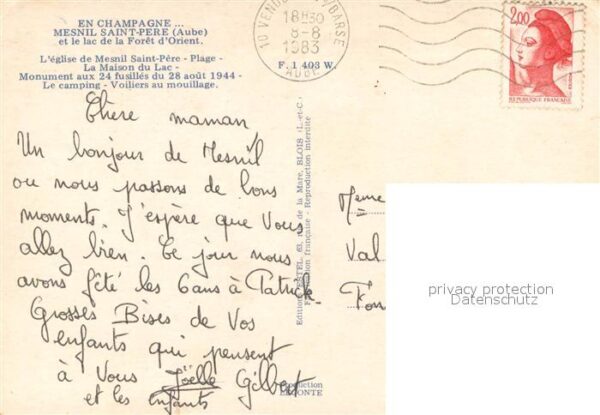 EN CHAMPAGNE ...
MESNIL SAINT-PERE (Aube)
et le lac de la Forêt d'Orient.
L'église de Mesnil Saint-Père - Plage -
La Maison du Lac -
Monument aux 24 fusillés du 28 août 1944 -
Le camping - Voiliers au mouillage.
F. 1 403 W.
10 VENDEUVRE / BARSE
18H30
8-8
1983
AUBE
2,00
REPUBLIQUE FRANÇAISE
Chère maman
Un bonjour de Mesnil
ou nous passons de bons
moments. J'espère que Vous
allez bien. Ce jour nous
avons fêté les 6 ans à Patrick.
Grosses Bises de Vos
enfants qui pensent
à Vous Joëlle Gilbert
et les enfants
Edition ESTEL, 63, rue de la Mare, BLOIS (L.-et-C.)
Fabrication française - Reproduction interdite
Production
LECONTE
Meme
Val
privacy protection
Datenschutz